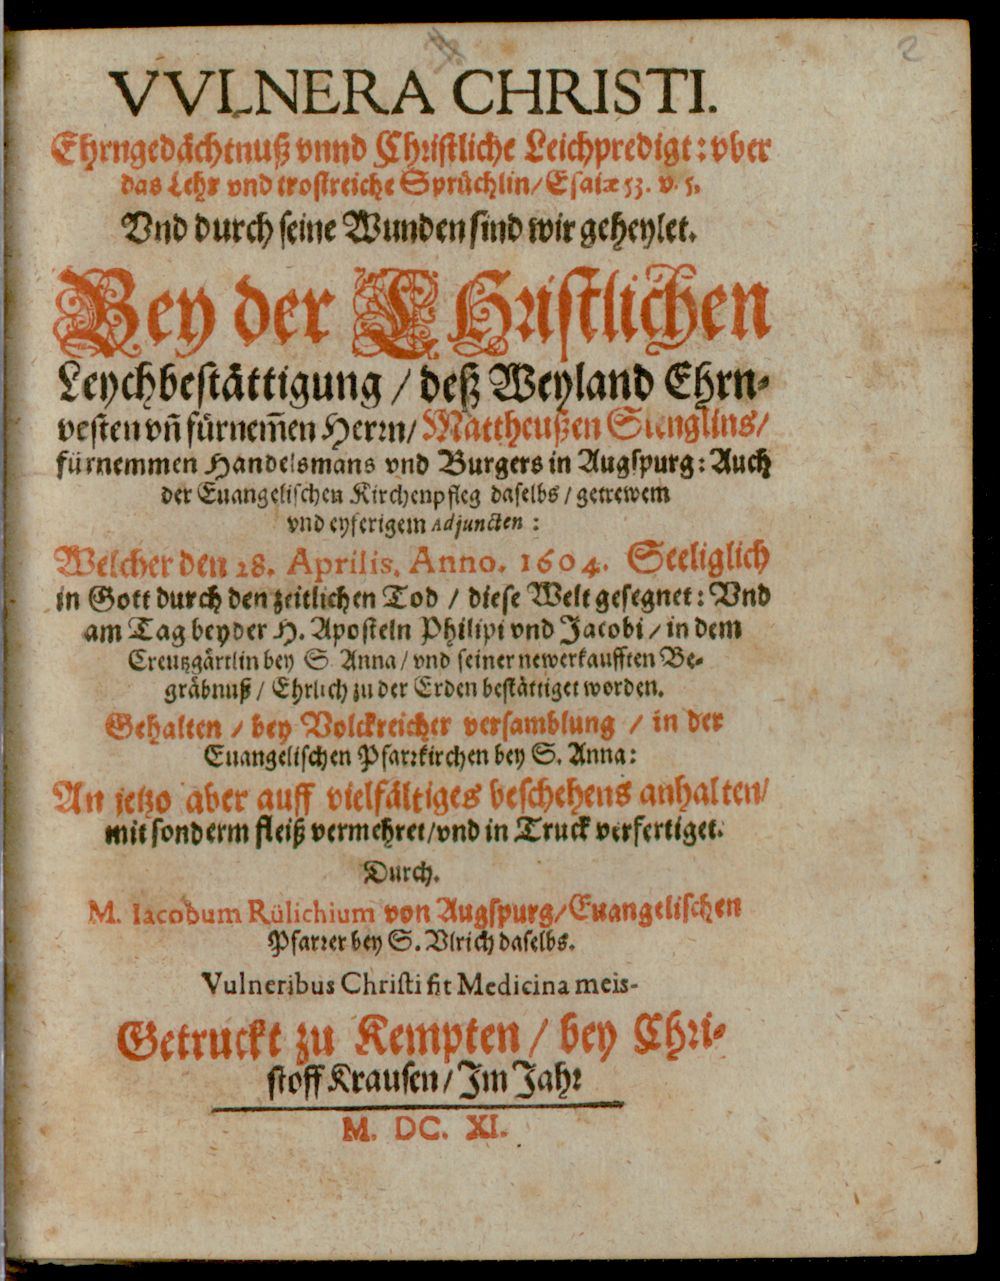 2
VVLNERA CHRISTI.
Ehrngedächtnuß vnnd Christliche Leichpredigt: vber
das Lehr vnd trostreiche Sprüchlin/ Esaiæ 53. v. 5.
Vnd durch seine Wunden sind wir geheylet.
Bey der CHristlichen
Leychbestättigung / deß Weyland Ehrn-
vesten vñ fürnem̄en Herrn/ Mattheußen Stenglins/
fürnemmen Handelsmans vnd Burgers in Augspurg: Auch
der Euangelischen Kirchenpfleg daselbs / getrewem
vnd eyferigem Adjuncten :
Welcher den 28. Aprilis. Anno. 1604. Seeliglich
in Gott durch den zeitlichen Tod / diese Welt gesegnet: Vnd
am Tag beyder H. Aposteln Philipi vnd Jacobi / in dem
Creutzgärtlin bey S. Anna / vnd seiner newerkaufften Be-
gräbnuß / Ehrlich zu der Erden bestättiget worden.
Gehalten / bey Volckreicher versamblung / in der
Euangelischen Pfarrkirchen bey S. Anna:
An jetzo aber auff vielfältiges beschehens anhalten/
mit sonderm fleiß vermehret/ vnd in Truck verfertiget.
Durch.
M. Iacobum Rülichium von Augspurg/ Euangelischen
Pfarrer bey S. Vlrich daselbs.
Vulneribus Christi fit Medicina meis-
Getruckt zu Kempten / bey Chri-
stoff Krausen / Im Jahr
M. DC. XI.